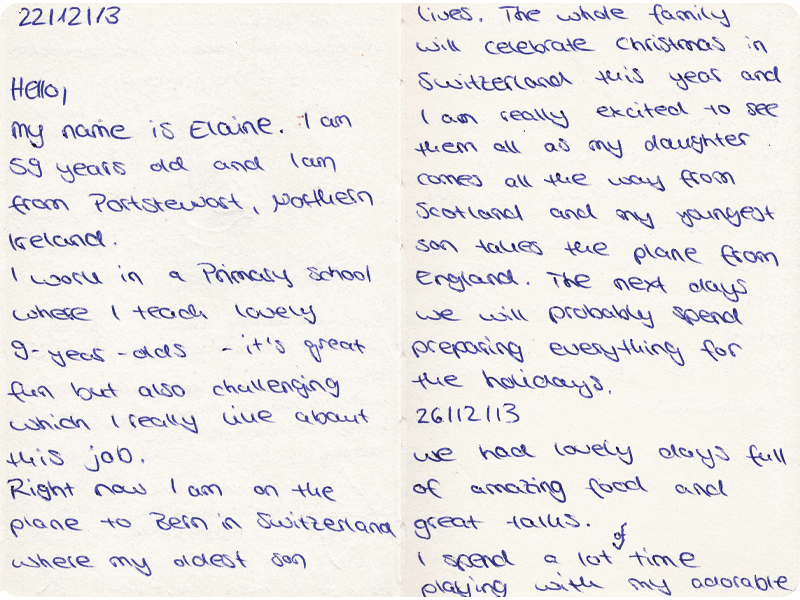 22/12/13
Hello,
my name is Elaine. I am
59 years old and I am
from Portstewart, Northern
Ireland.
I work in a Primary school
where I teach lovely
9-year-olds - it's great
fun but also challenging
which I really like about
this job.
Right now I am on the
plane to Bern in Switzerland
where my oldest son
lives. The whole family
will celebrate Christmas in
Switzerland this year and
I am really excited to see
them all as my daughter
comes all the way from
Scotland and my youngest
son takes the plane from
England. The next days
we will probably spend
preparing everything for
the holidays.
26/12/13
we had lovely days full
of amazing food and
great talks.
I spend a lot of time
playing with my adorable